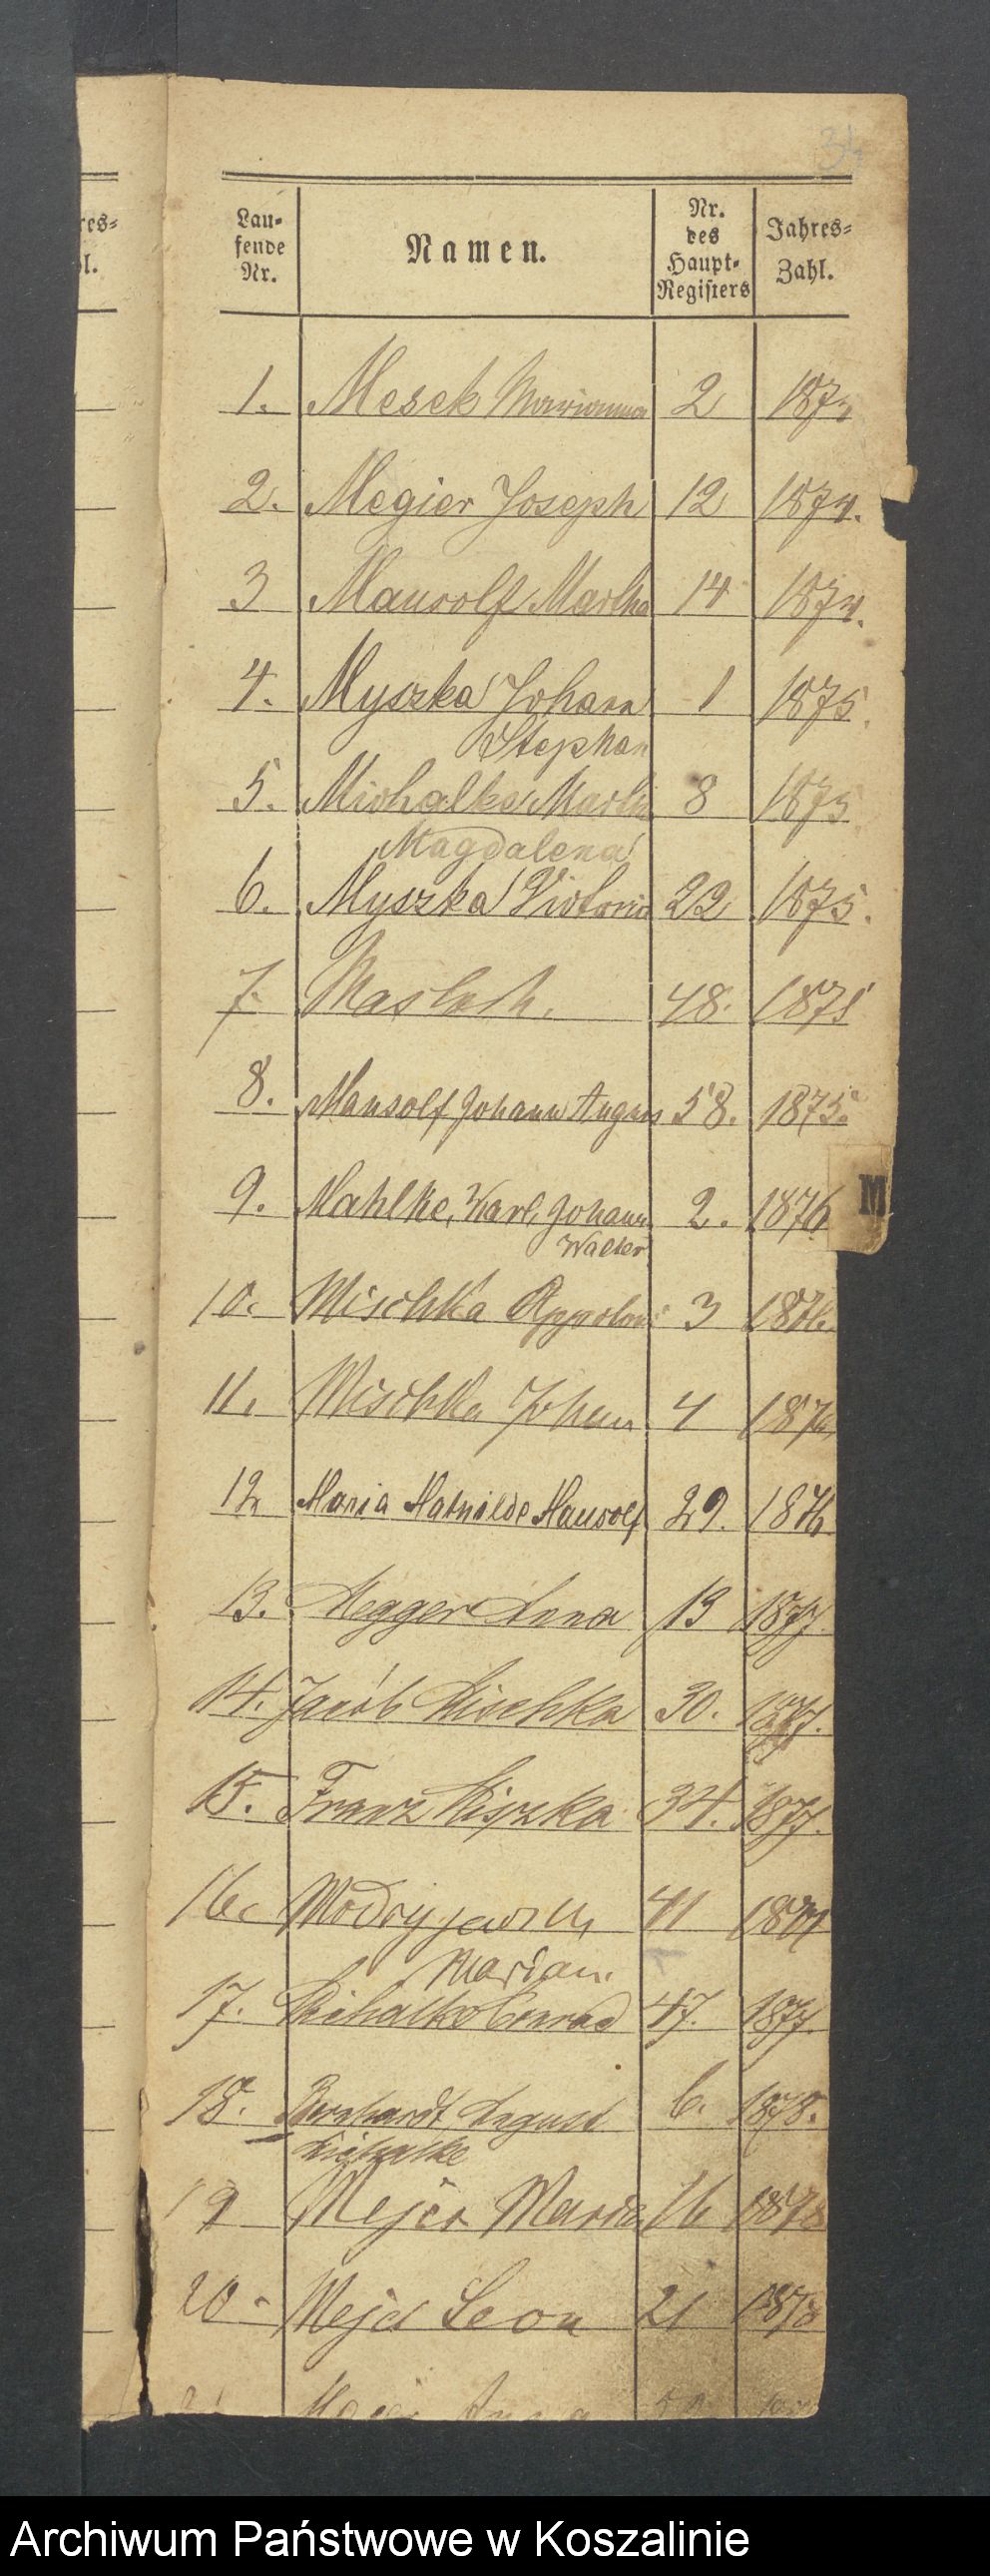 34
res-
l.
Lau-
fende
Nr.
Namen.
Nr.
des
Haupt-
Registers
Jahres-
Zahl.
1. Mesek Marianna 2 1874
2. Megier Joseph 12 1874.
3 Mausolf Martha 14 1874.
4. Myszka Johann 1 1875.
Stephan
5. Michalke Martin 8 1875
Magdalena
6. Myszka Victoria 22 1875.
7. 48. 1875
8. Mausolf Johann August 58. 1875.
9. Mahlke, Karl, Johann 2. 1876
Walter
M
10. Mischka 3 1876.
11. Mischka Johann 4 1876
12 Maria Mathilde Mausolf 29. 1876
13. Megger Anna 13 1877.
14. Jacob Mischka 30. 1877.
15. Franz Miszka 34. 1877.
16. 41 1877
Marian.
17. Michalke Conrad 47. 1877.
18. August 6. 1878.
Michalke
19 Mejer Maria 16 1878
20. Mejer Leon 21 1878
Anna
Archiwum Państwowe w Koszalinie